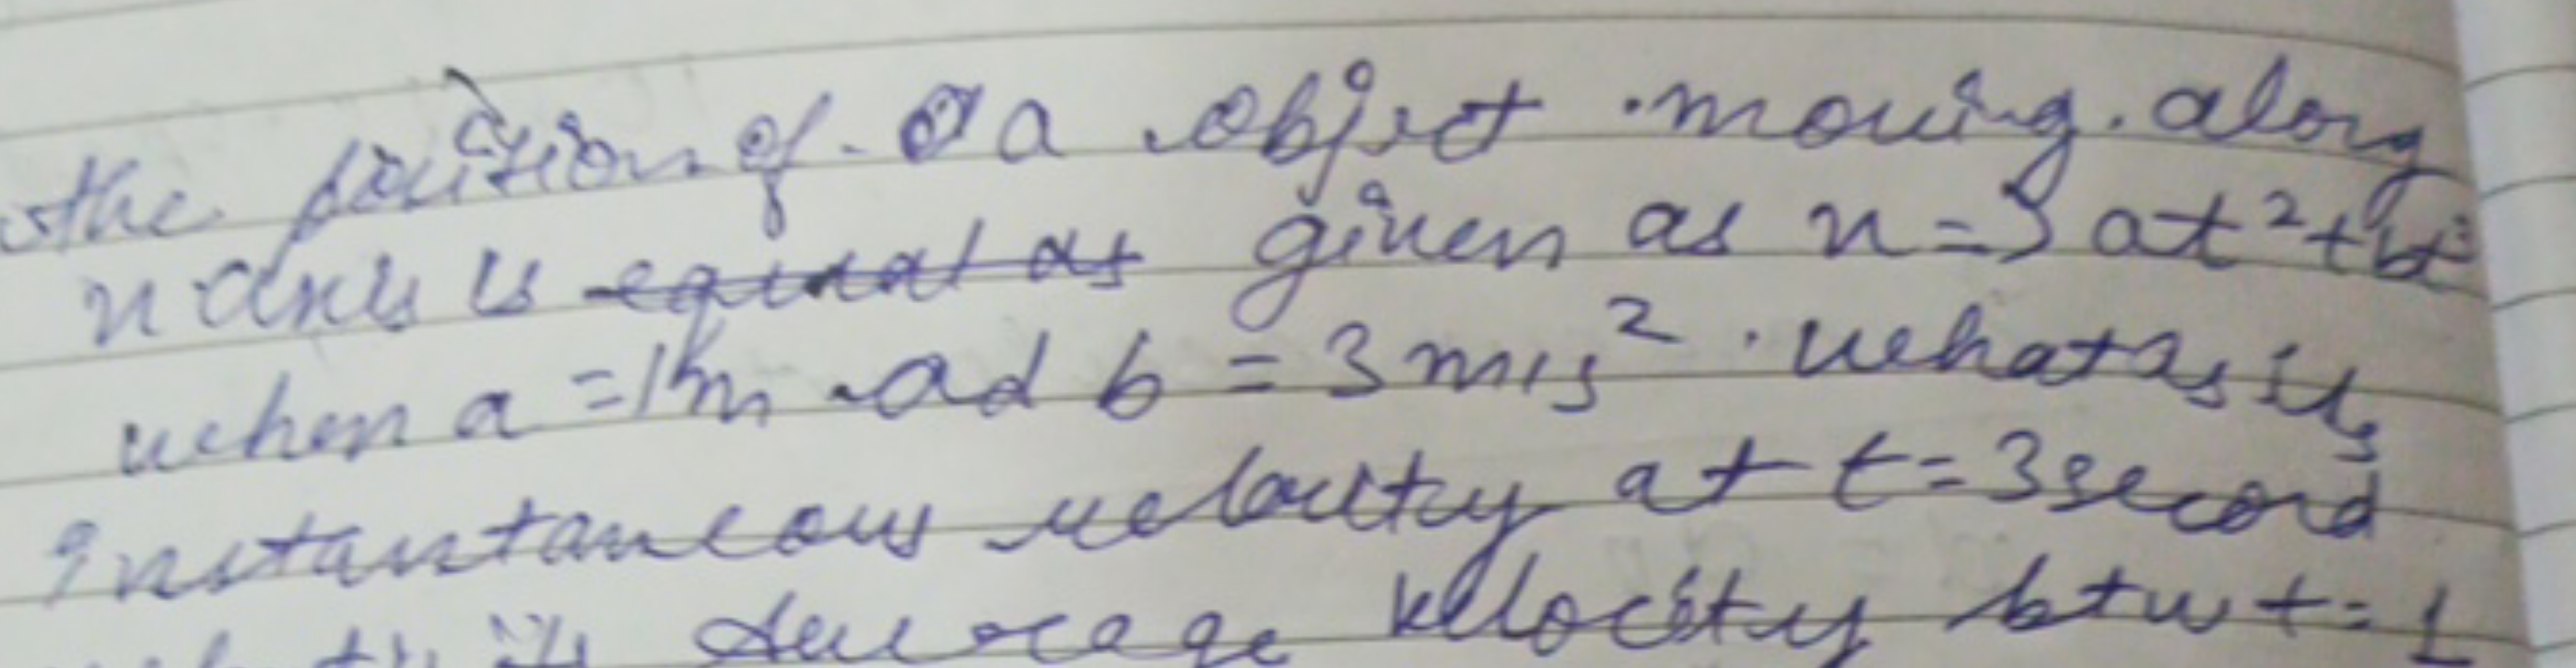 the position of a object moving along
x axis is equal as given as x = 3 at² + bt²
when a = 1m ad b = 3 m/s². what is its
Instantaneous velocity at t = 3 second
its Average velocity btw t = 1